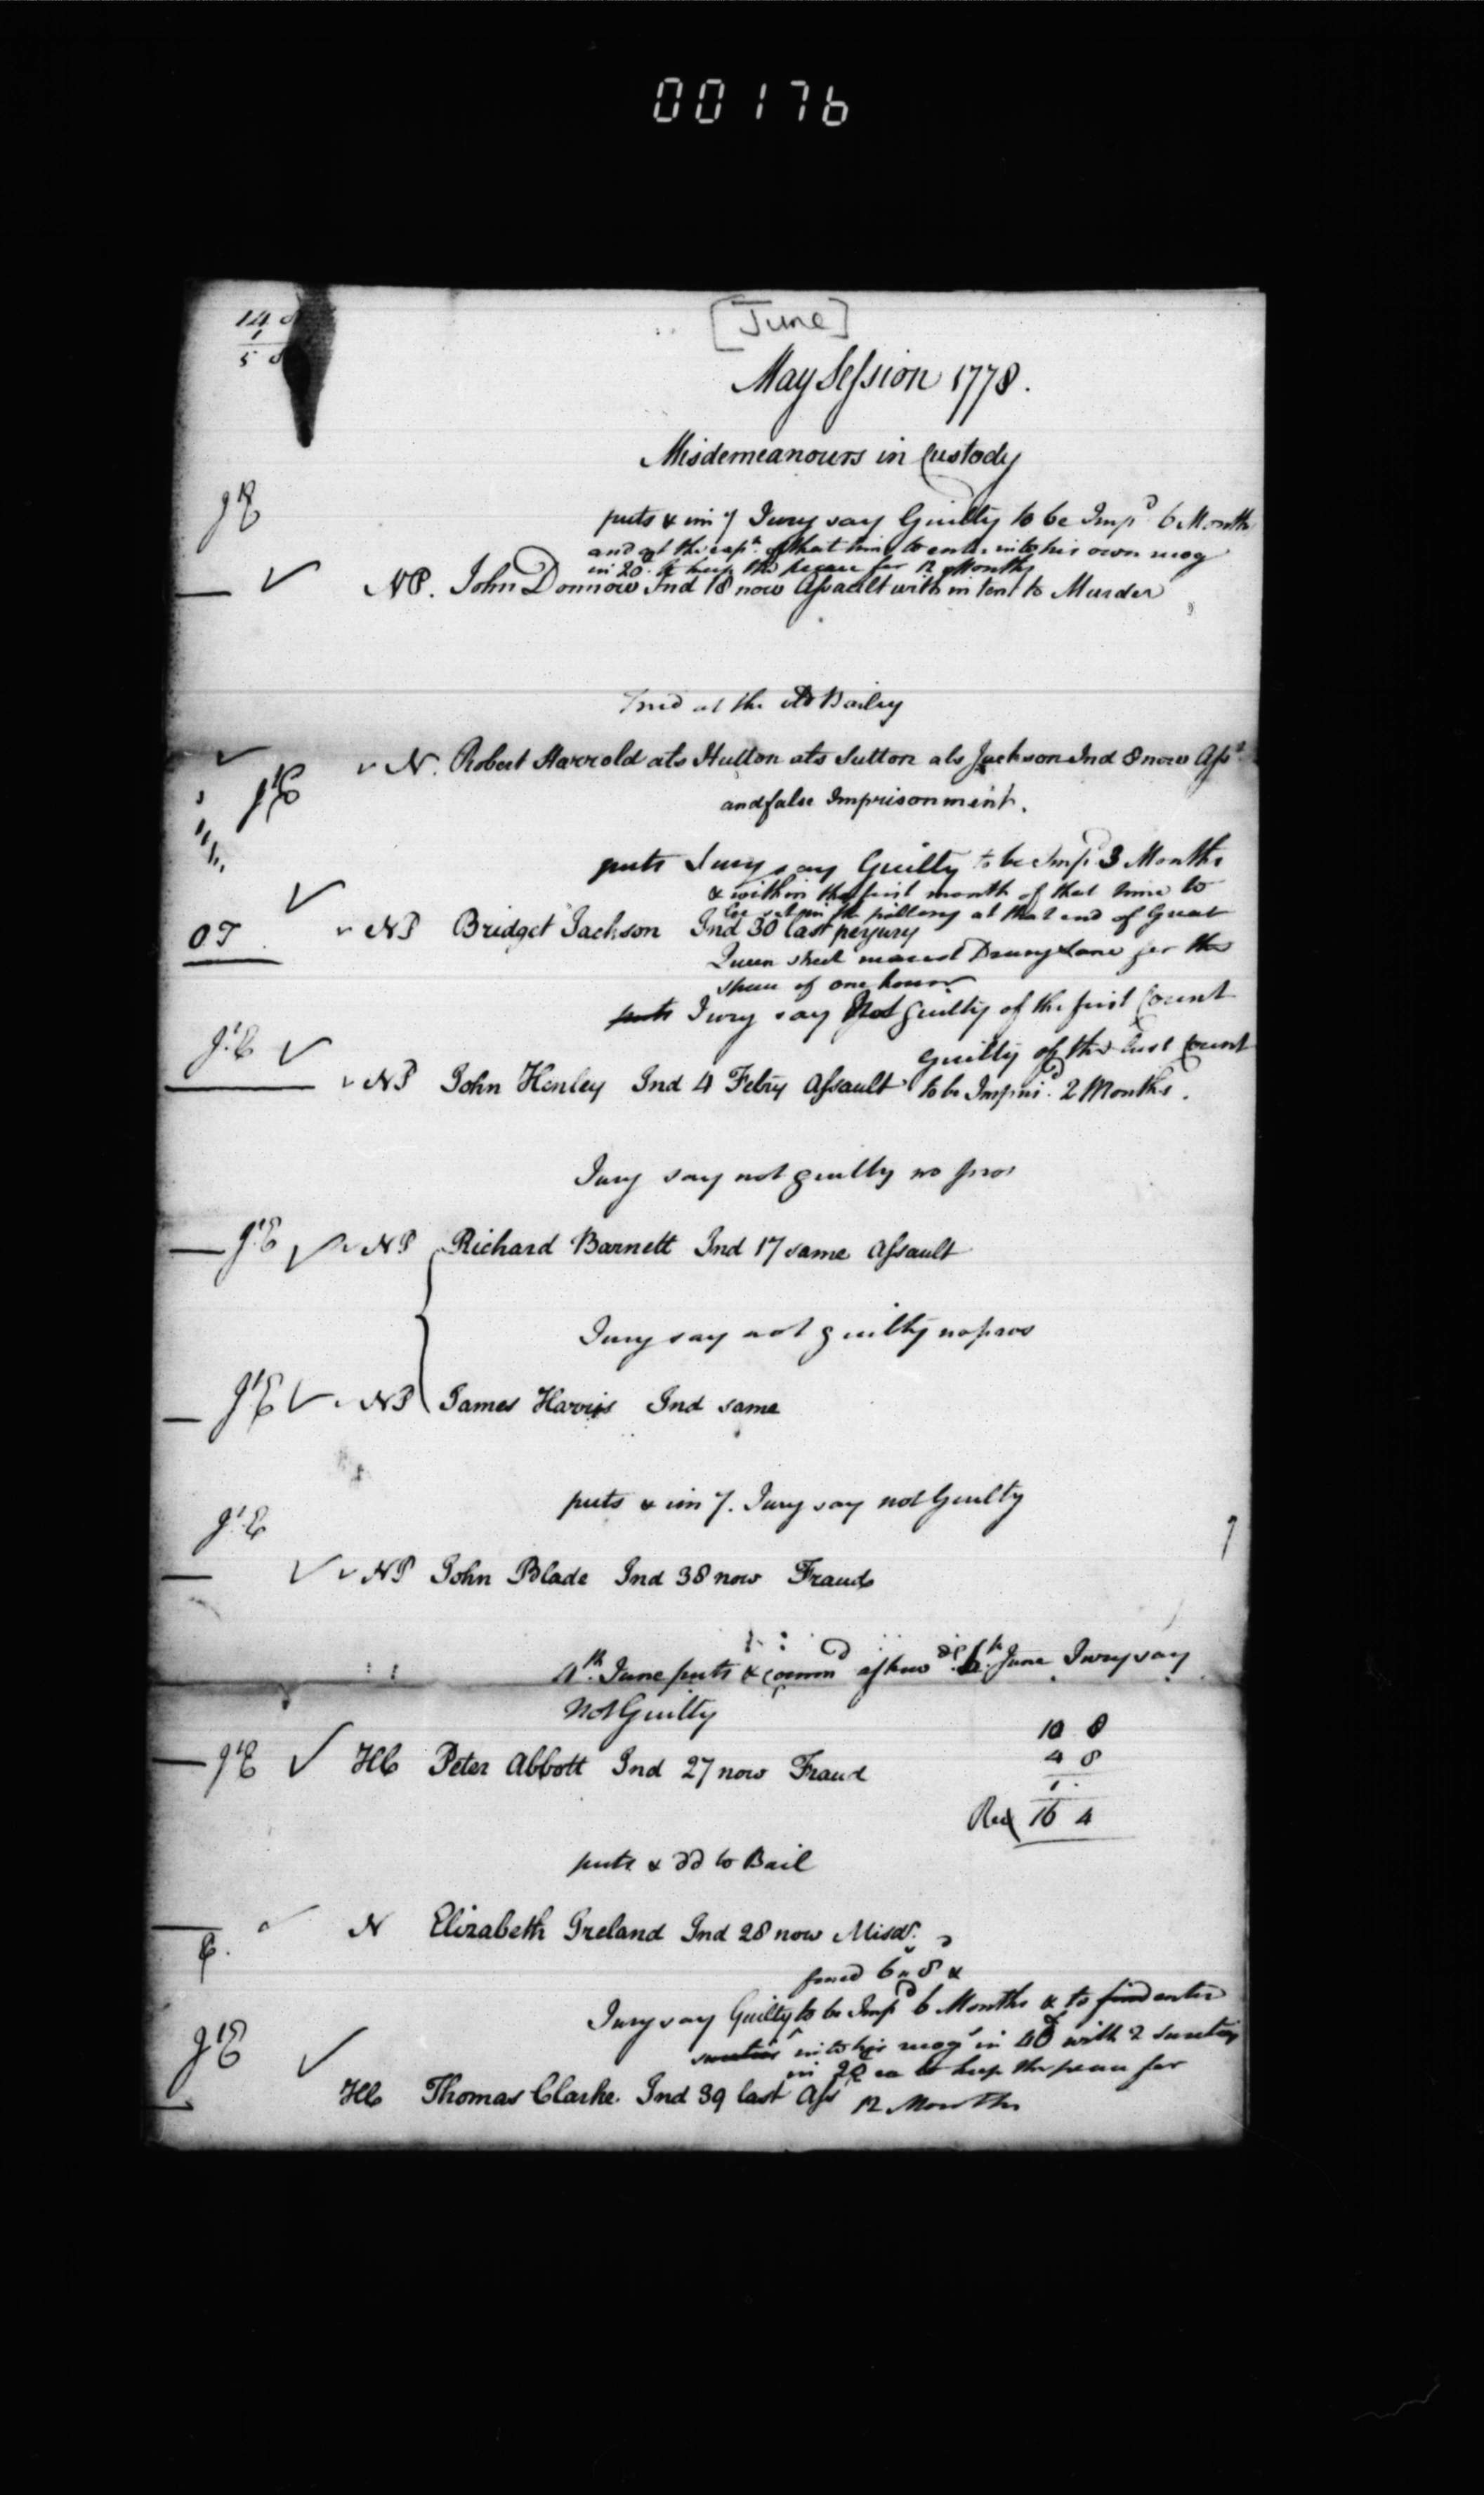 00176
14 8
1
5 8
[June]
May Session 1778.
Misdemeanours in Custody
puts & im 7 Jury say Guilty to be Imp^d 6 Month
and at the exp^n of that time to enter into his own recog
in 20^£ to keep the peace for 12 Months
NP. John Donnow Ind 18 now Assault with intent to Murder
Tried at the Old Bailey
N. Robert Harrold als Hutton als Sutton als Jackson Ind 8 now Ass^t
and false Imprisonment.
puts Jury say Guilty to be Imp^d 3 Months
& within the first month of that time to
be set in the pillory at that end of Great
OT NP Bridget Jackson Ind 30 last perjury
Queen street nearest Drury Lane for the
space of one hour
puts Jury say Not guilty of the first Count
guilty of the last Count
NP John Henley Ind 4 Febry Assault to be Impris^d. 2 Months.
Jury say not guilty no pros
NP Richard Barnett Ind 17 same Assault
Jury say not guilty no pros
NP James Harris Ind same
puts & im 7. Jury say not Guilty
NP John Blade Ind 38 now Fraud
4^th. June puts & June Jury say
Not Guilty
10 8
4 8
1
HC Peter Abbott Ind 27 now Fraud
16 4
puts & dd to Bail
N Elizabeth Greland Ind 28 now Misd^r.
fined 6^s 8 &
Jury say Guilty to be Imp^d 6 Months & to find enter
sureties into his recog^e in 40^£ with 2 sureties
in 20^£ ea to keep the peace for
HC Thomas Clarke. Ind 39 last Ass^t 12 Months